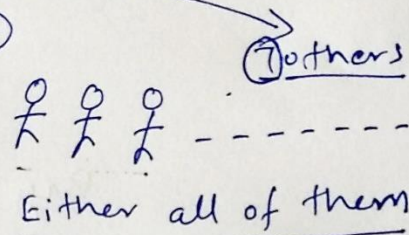 7 others
Either all of them